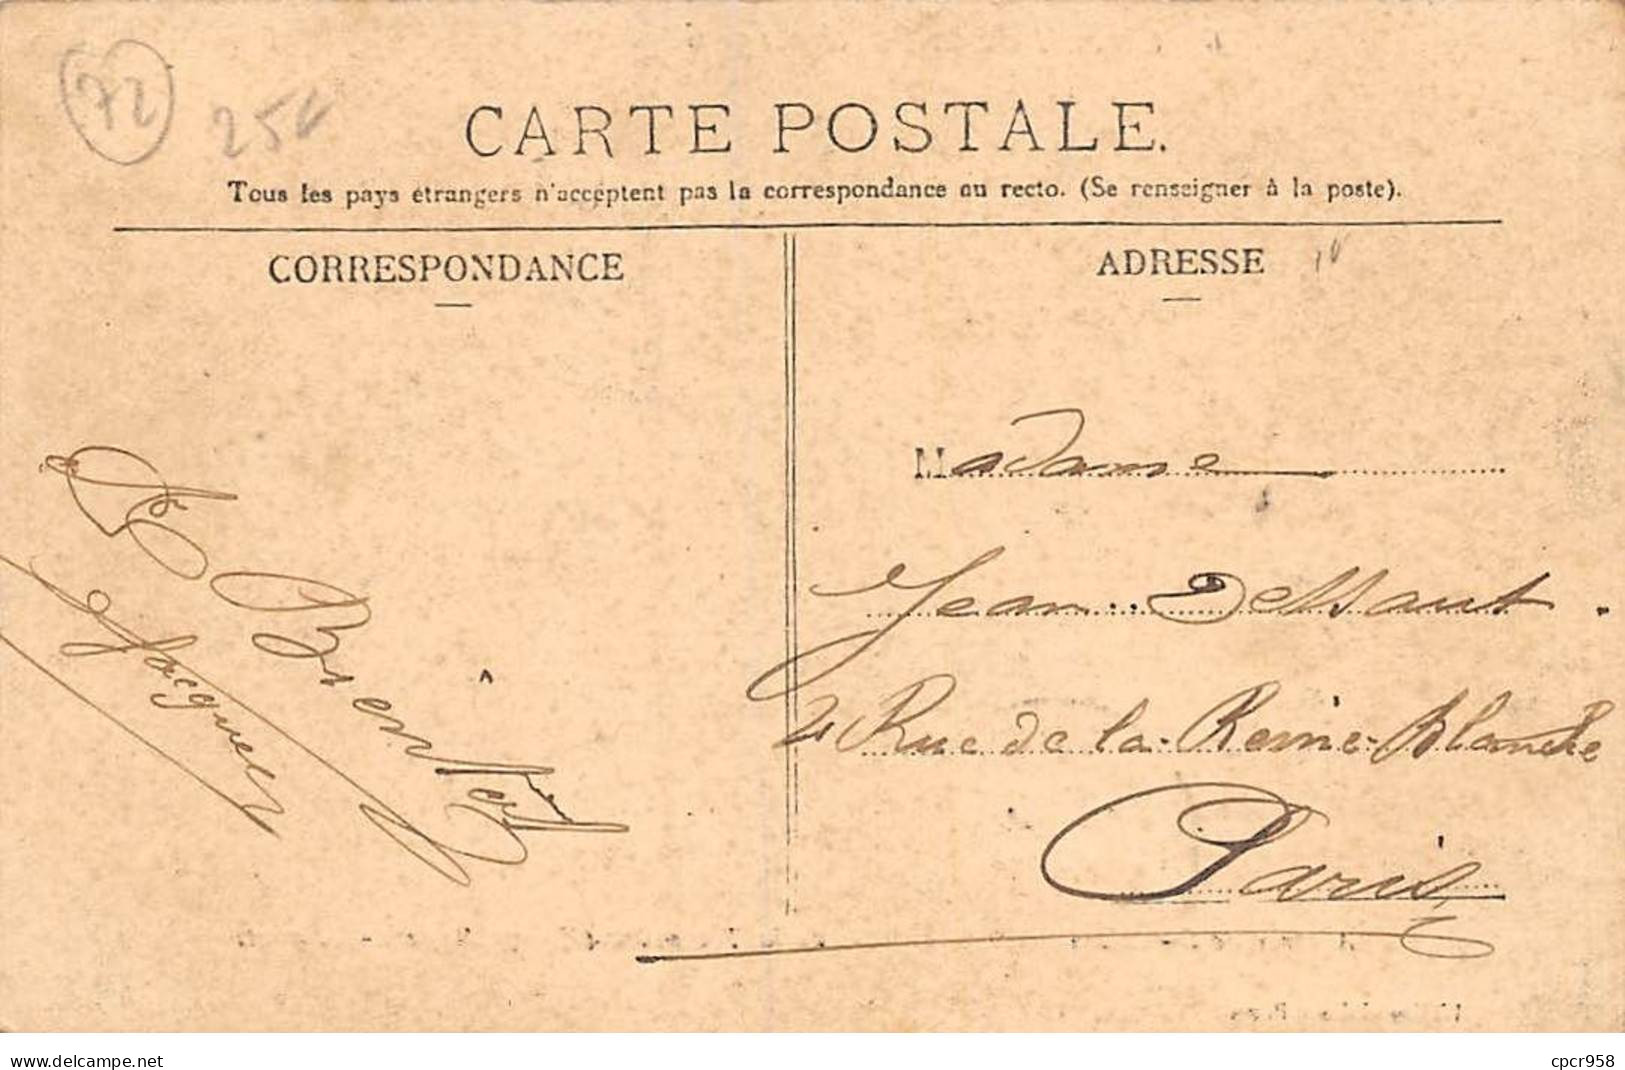 72
CARTE POSTALE.
Tous les pays étrangers n'acceptent pas la correspondance au recto. (Se renseigner à la poste).
CORRESPONDANCE
ADRESSE
A Bientôt
Jacques
Madame
Jean Dessaut.
Rue de la Reine Blanche
Paris
www.delcampe.net
cpcr958